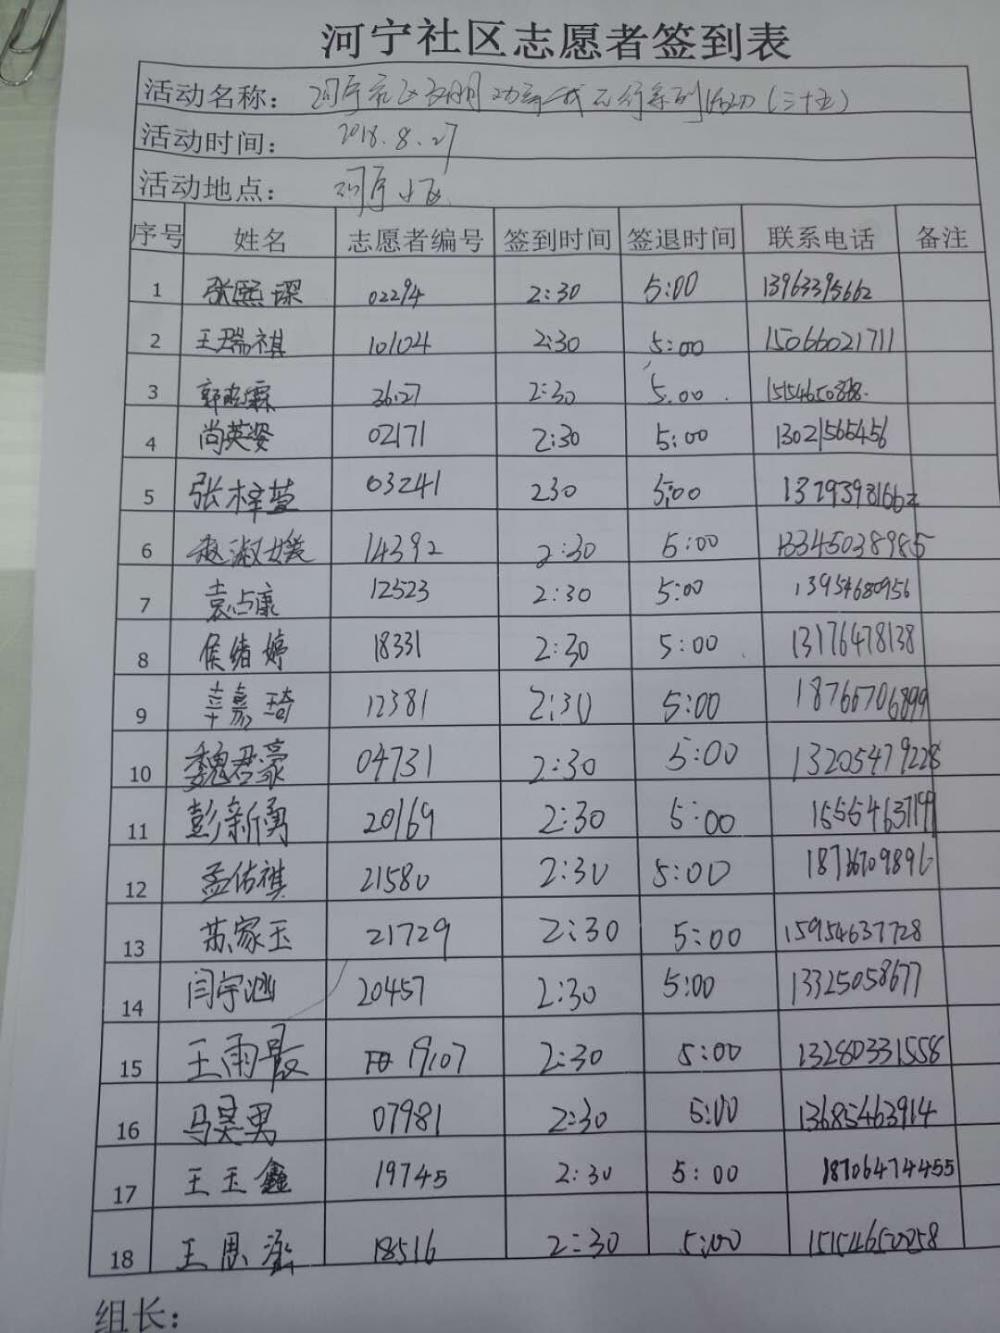 河宁社区志愿者签到表
活动名称： 河宁社区文明 系列活动（三十五）
活动时间： 2018.8.27
活动地点： 河宁小区
序号 姓名 志愿者编号 签到时间 签退时间 联系电话 备注
1 张熙琛 02294 2:30 5:00 13963395662
2 王瑞祺 10104 2:30 5:00 15066021711
3 郭 霖 2:30 5.00
4 尚英姿 02171 2:30 5:00 13021565456
5 张梓萱 03241 230 5:00
6 赵淑媛 14392 2:30 5:00 13345038985
7 袁占康 12523 2:30 5:00 13954680956
8 侯绪婷 18331 2:30 5:00 13176478138
9 辛嘉琦 12381 2:30 5:00 18766706899
10 魏君豪 04731 2:30 5:00 13205479228
11 彭新勇 20169 2:30 5:00
12 孟佑祺 21580 2:30 5:00
13 苏家玉 21729 2:30 5:00 15954637728
14 闫宇 20457 2:30 5:00 13325058677
15 王雨 19107 2:30 5:00 13280331558
16 马昊男 07981 2:30 5:00 13685463914
17 王玉鑫 19745 2:30 5:00 18706474455
18 王思 18516 2:30 5:00 15154650058
组长：